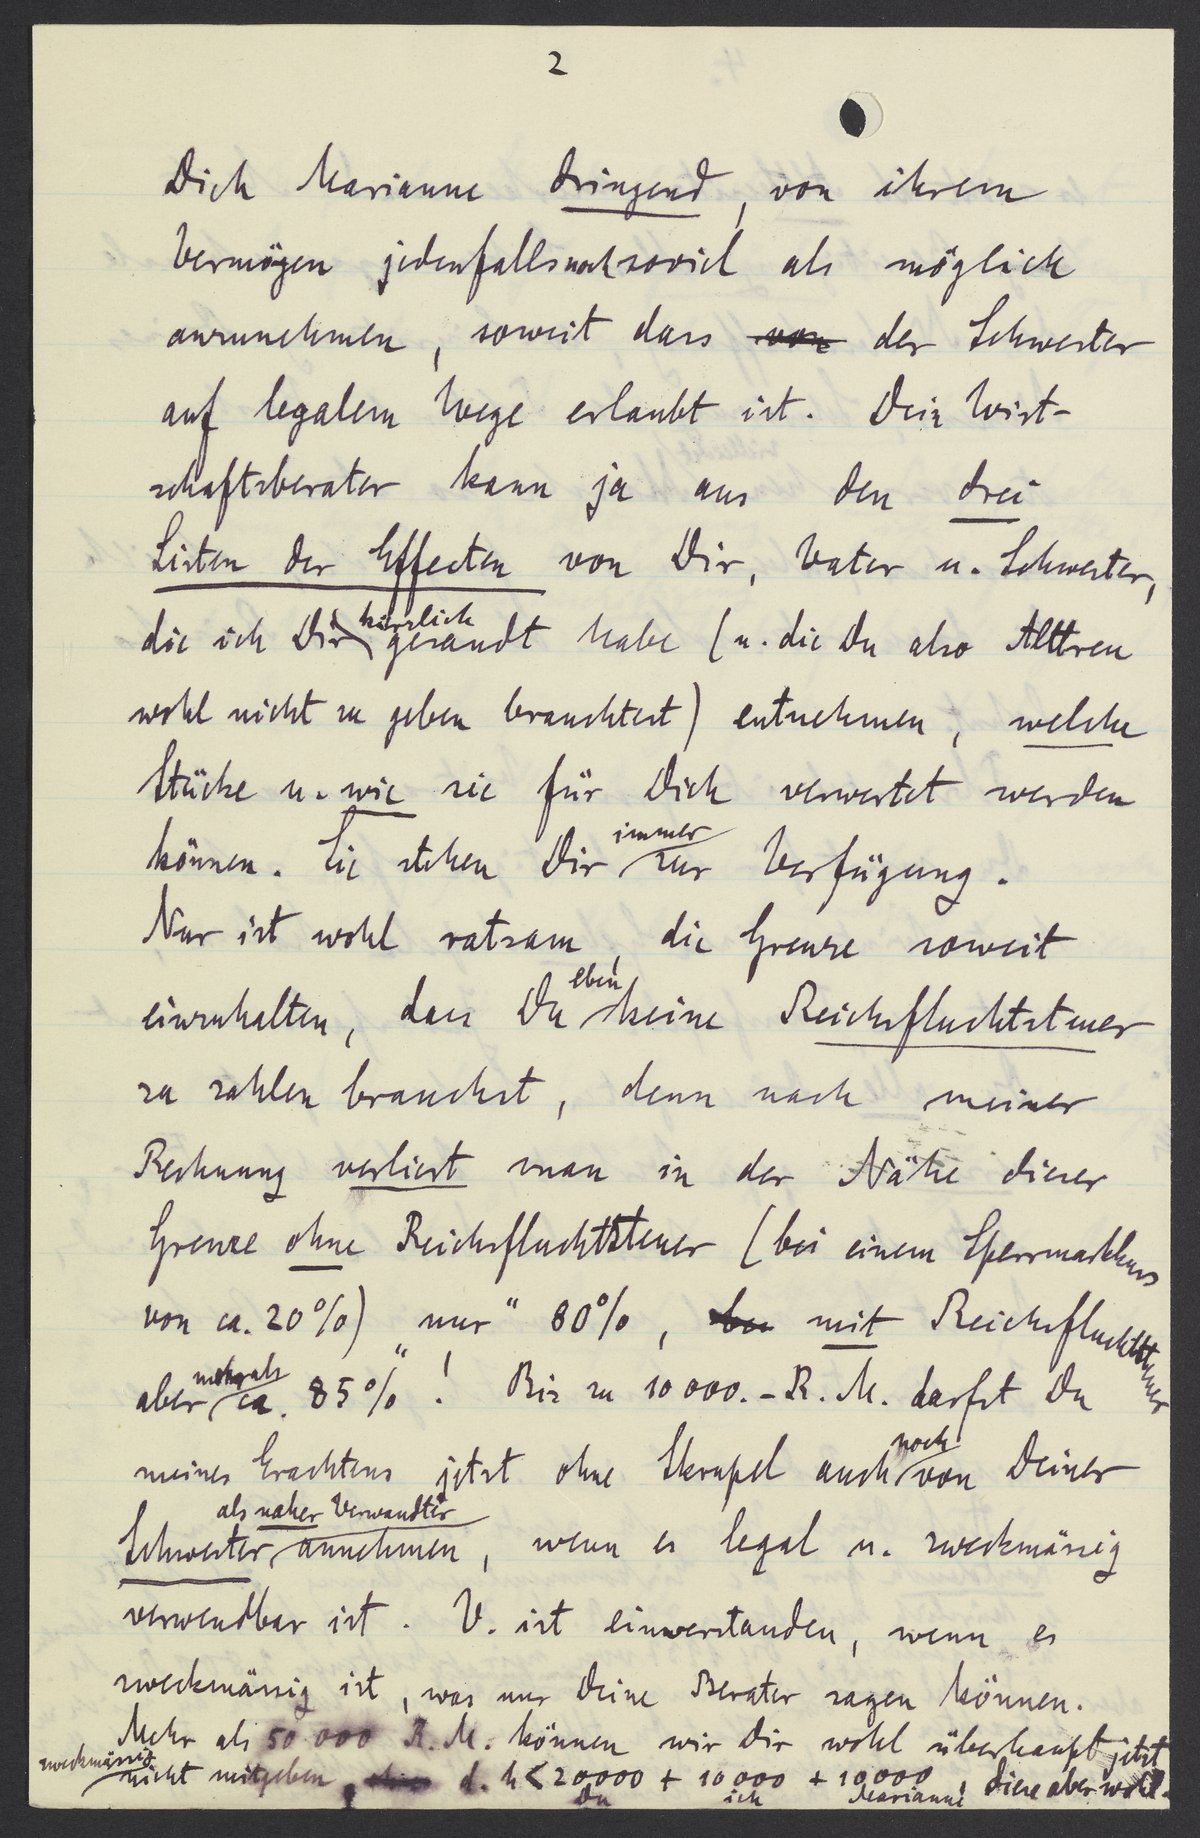 2
Dich Marianne dringend, von ihrem
Vermögen jedenfalls noch soviel als möglich
anzunehmen, soweit dass von der Schwester
auf legalem Wege erlaubt ist. Dein Wirt-
schaftsberater kann ja aus den drei
Listen der Effecten von Dir, Vater u. Schwester,
die ich Dir kürzlich gesandt habe (u. die Du also
wohl nicht zu geben brauchtest) entnehmen, welche
Stücke u. wie sie für Dich verwertet werden
können. Sie stehen Dir immer zur Verfügung.
Nur ist wohl ratsam, die Grenze soweit
einzuhalten, dass Du eben keine Reichsfluchtsteuer
zu zahlen brauchst, denn nach meiner
Rechnung verliert man in der Nähe dieser
Grenze ohne Reichsfluchtsteuer (bei einem Sperrmarkkurs
von ca. 20%) „nur“ 80%, mit Reichsfluchtsteuer
aber mehr als ca. 85%“! Bis zu 10 000.- R.M. darfst Du
meines Erachtens jetzt ohne Skrupel auch noch von Deiner
Schwester als naher Verwandter annehmen, wenn es legal u. zweckmässig
verwendbar ist. V. ist einverstanden, wenn es
zweckmässig ist, was nur Deine Berater sagen können.
Mehr als 50 000 R.M. können wir Dir wohl überhaupt jetzt
zweckmässig nicht mitgeben, d. h. < 20000 + 10000 + 10000, diese aber wohl.
Du ich Marianne